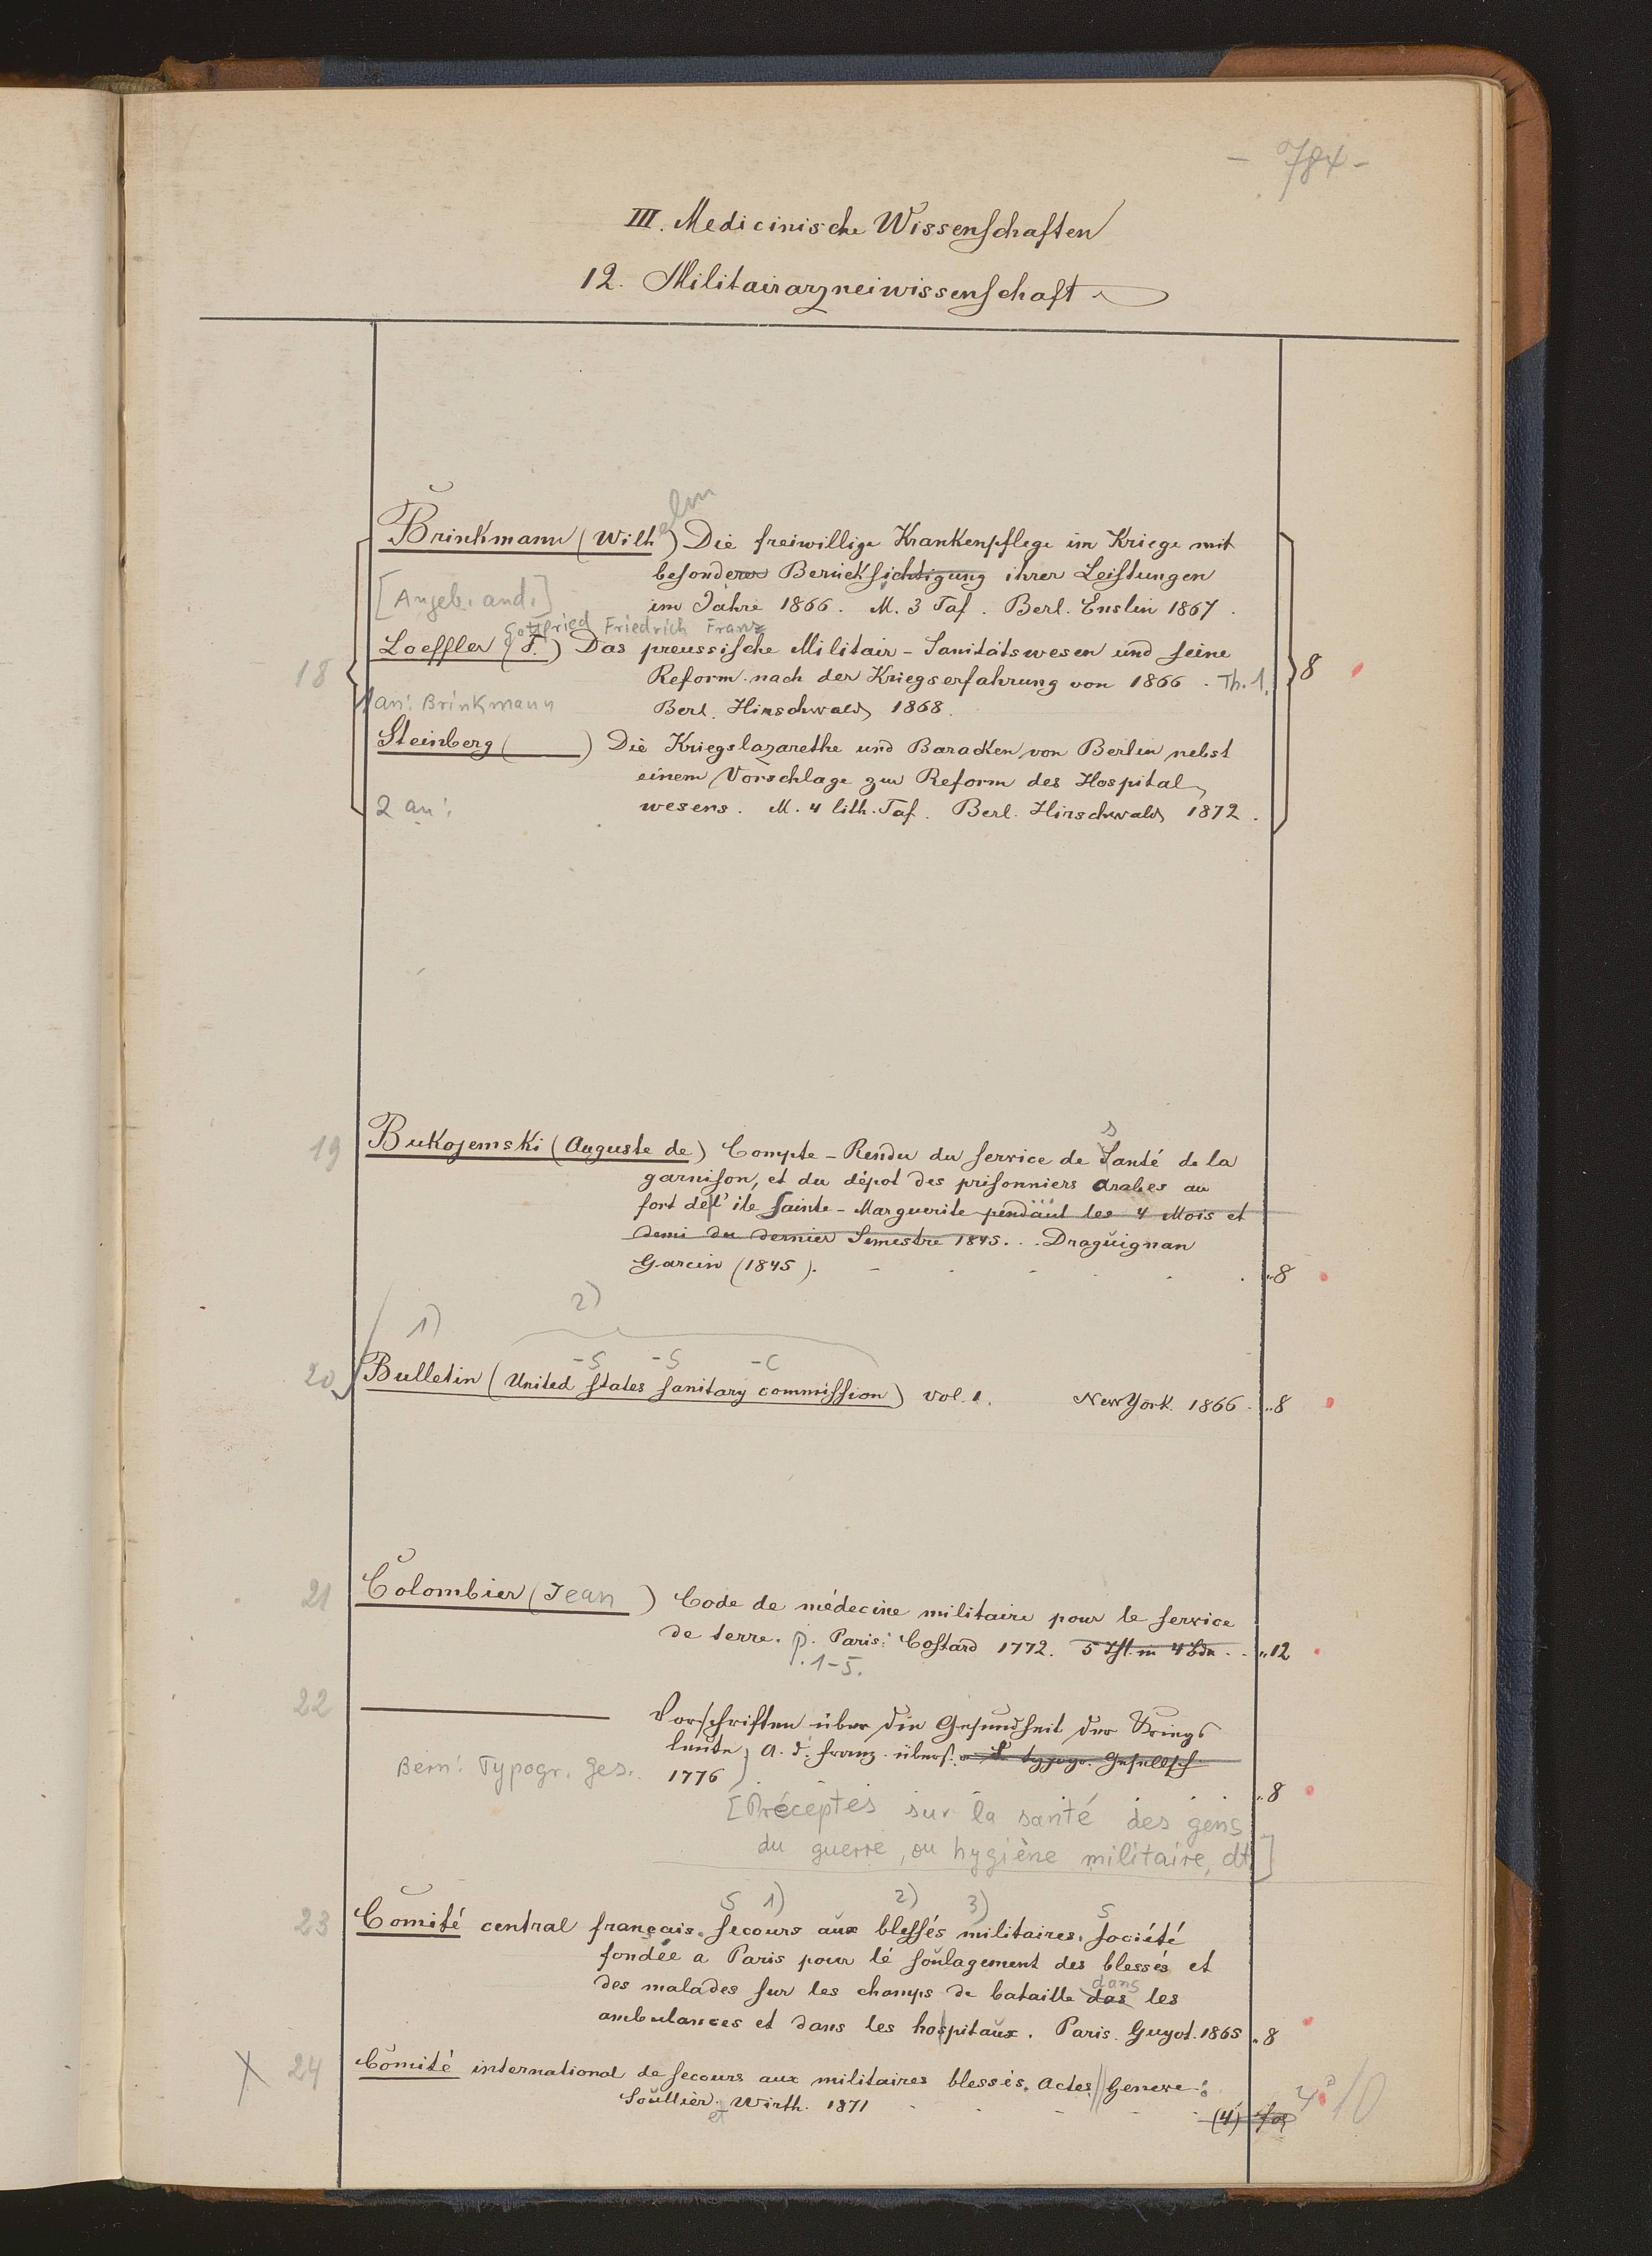 - 784 -
III. Medicinische Wissenschaften
12. Militairarzneiwissenschaft
elm
Brinkmann (Wilh ) Die freiwillige Krankenpflege im Kriege mit
besonderer Berücksichtigung ihrer Leistungen
[Angeb. and.] im Jahre 1866. M. 3 Taf. Berl. Enslin 1867.
Gottfried Friedrich Franz
Loeffler (F.) Das preussische Militair-Sanitätswesen und seine
18 Reform nach der Kriegserfahrung von 1866. Th. 1. 8
1 an: Brinkmann Berl. Hirschwald 1868.
Steinberg ( ) Die Kriegslazarethe und Baracken von Berlin nebst
einem Vorschlage zur Reform des Hospital
2 an: wesens. M. 4 lith. Taf. Berl. Hirschwald 1872.
s
19 Bukojemski (Auguste de) Compte-Rendu du service de Santé de la
garnison, et du dépot des prisonniers arabes au
fort de l'ile Sainte-Marguerite pendant les 4 Mois et
demi du dernier Semestre 1845... Draguignan
Garcin (1845). „8
1) 2)
-S -S -C
20 Bulletin (United states sanitary commission) vol. 1. New York. 1866. „8
21 Colombier (Jean ) Code de médecine militaire pour le service
de terre. p. Paris: Costard 1772. 5 Thl. in 4 Bdn. „12
p. 1-5.
22 Vorschriften über die Gesundheit der Kriegs
leute, a. d. franz. übers. typogr. Gesellsch.
Bern: Typogr. Ges. 1776 „8
[Préceptes sur la santé des gens
du guerre, ou hygiène militaire, dt.]
S 1) 2) 3) S
23 Comité central français. secours aux blessés militaires. société
fondée a Paris pour le soulagement des blessés et
dans
des malades sur les champs de bataille das les
ambulances et dans les hospitaux. Paris. Guyot. 1865 „8
X 24 Comité international de secours aux militaires blessés. Actes // Geneve:
Soullier. et Wirth. 1871 (4) fol 4° 10